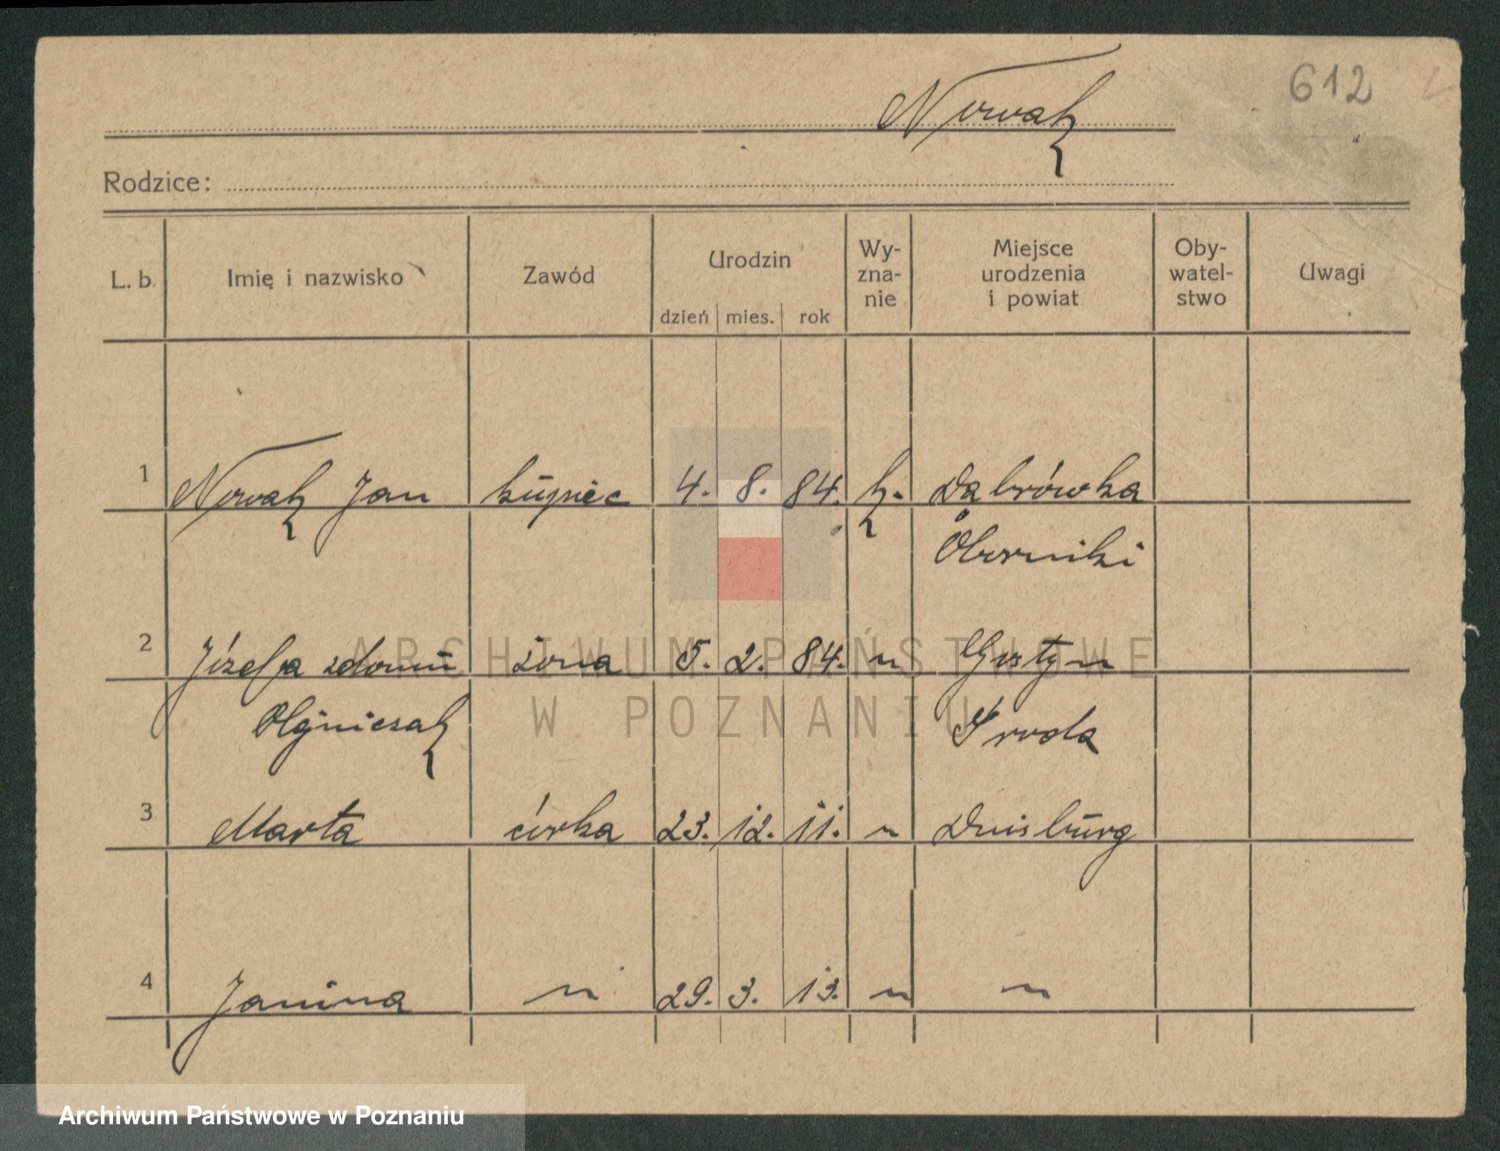 612
Nowak
Rodzice:
L. b. Imię i nazwisko Zawód Urodzin dzień mies. rok Wy-zna-nie Miejsce urodzenia i powiat Oby-watel-stwo Uwagi
1 Nowak Jan kupiec 4. 8. 84. k. Dąbrówka
Oborniki
2 Józefa zdomu żona 5. 2. 84. " Gostyn
Środa
3 Marta córka 23. 12. 11. " Duisburg
4 Janina " 29. 3. 13. " "
ARCHIWUM PAŃSTWOWE
W POZNANIU
Archiwum Państwowe w Poznaniu